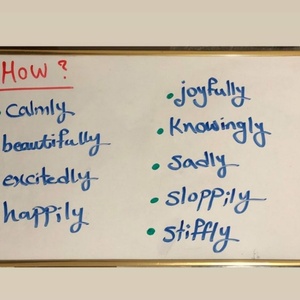 How?
• calmly
beautifully
excitedly
happily
• joyfully
• Knowingly
• sadly
• sloppily
• stiffly